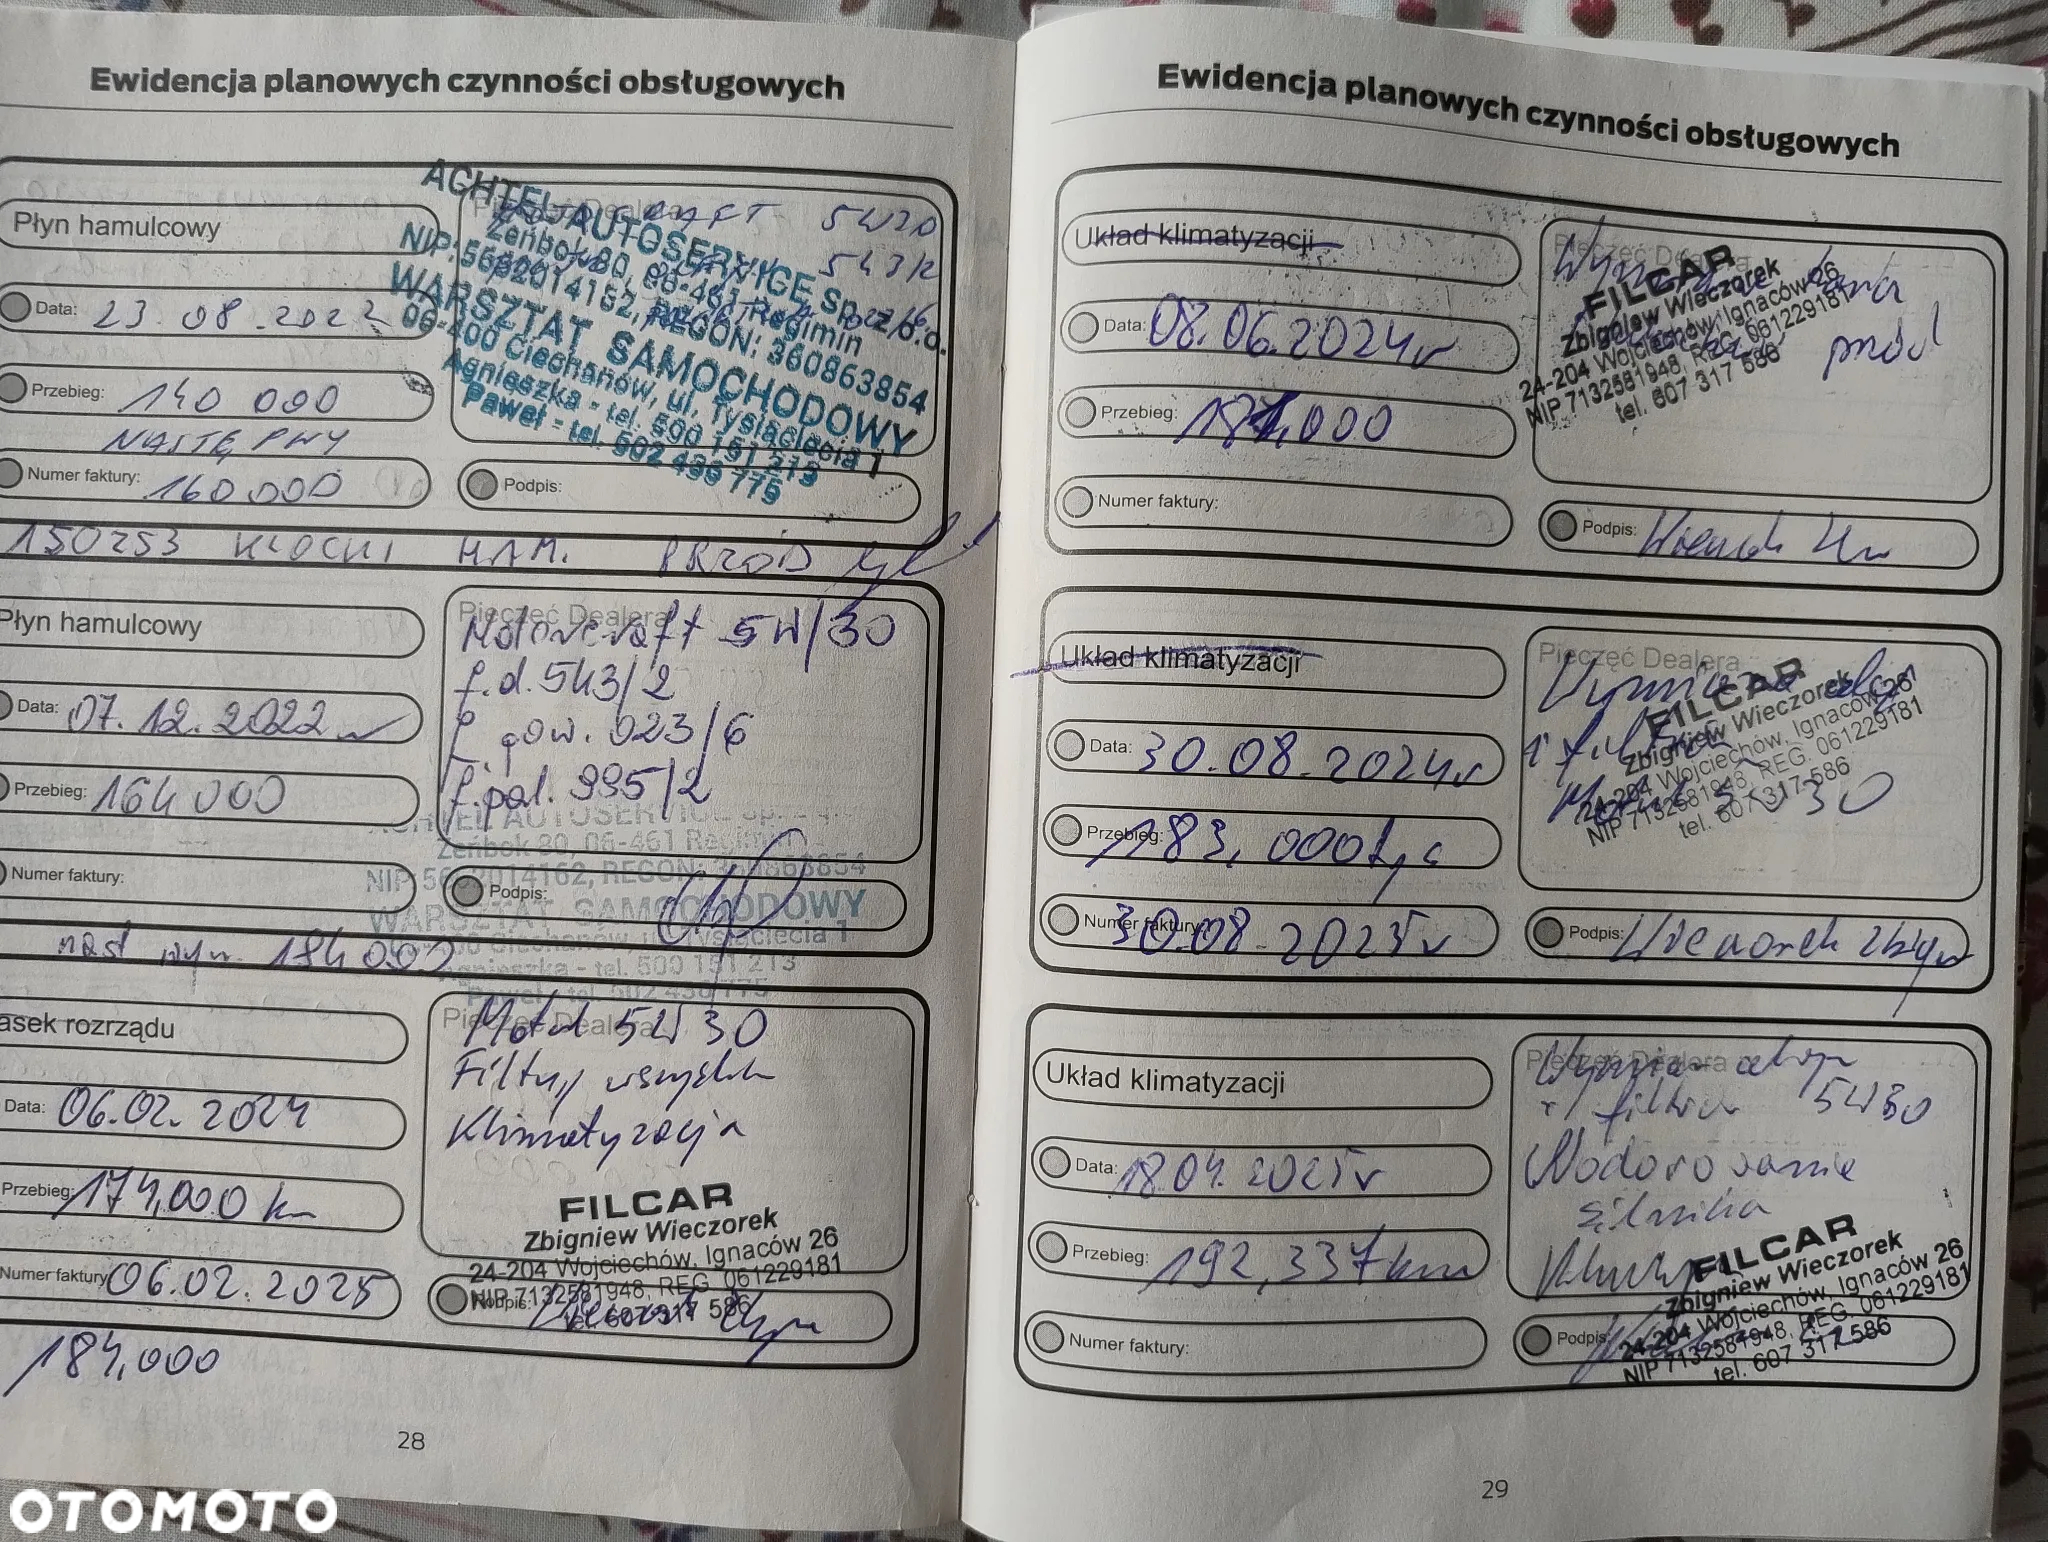 Ewidencja planowych czynności obsługowych
Płyn hamulcowy
Pieczęć Dealera
5W20
543/2
ACHTEL AUTOSERVICE Sp. z o.o.
Żeńbok 80, 06-461 Regimin
NIP: 5662014162, REGON: 360863854
WARSZTAT SAMOCHODOWY
06-400 Ciechanów, ul. Tysiąclecia 1
Agnieszka - tel. 500 151 213
Paweł - tel. 502 436 775
Data: 23.08.2022
Przebieg: 140 000
NASTĘPNY
Numer faktury: 160 000
Podpis:
150253 KLOCKI HAM. PRZÓD
Płyn hamulcowy
Pieczęć Dealera
Motorcraft 5W/30
f.d. 543/2
f. pow. 023/6
f. pal. 995/2
Data: 07.12.2022
Przebieg: 164 000
ACHTEL AUTOSERVICE Sp.
Żeńbok 80, 06-461 Regimin
NIP: 5662014162, REGON: 360863854
WARSZTAT SAMOCHODOWY
Agnieszka - tel. 500 151 213
Numer faktury:
Podpis:
nast wym. 184 000
asek rozrządu
Pieczęć Dealera
Motul 5W30
Filtry wszystkie
Klimatyzacja
Data: 06.02.2024
Przebieg: 174,000 km
Numer faktury: 06.02.2025
FILCAR
Zbigniew Wieczorek
24-204 Wojciechów, Ignaców 26
NIP 7132581948, REG. 061229181
tel. 607 317 586
Podpis:
184,000
28
Ewidencja planowych czynności obsługowych
Układ klimatyzacji
Pieczęć Dealera
przód
FILCAR
Zbigniew Wieczorek
24-204 Wojciechów, Ignaców 26
NIP 7132581948, REG. 061229181
tel. 607 317 586
Data: 08.06.2024r
Przebieg: 181,000
Numer faktury:
Podpis:
Układ klimatyzacji
Pieczęć Dealera
Wymiana oleju
i filtra
30
FILCAR
Zbigniew Wieczorek
24-204 Wojciechów, Ignaców 26
NIP 7132581948, REG. 061229181
tel. 607 317 586
Data: 30.08.2024r
Przebieg: 183,000 tyś
Numer faktury: 30.08.2025r
Podpis: Wieczorek Zbigniew
Układ klimatyzacji
Pieczęć Dealera
Wymiana oleju
i filtra 5W30
Wodorowanie
silnika
Data: 18.04.2025r
Przebieg: 192,337 km
Numer faktury:
FILCAR
Zbigniew Wieczorek
24-204 Wojciechów, Ignaców 26
NIP 7132581948, REG. 061229181
tel. 607 317 586
Podpis:
29
OTOMOTO